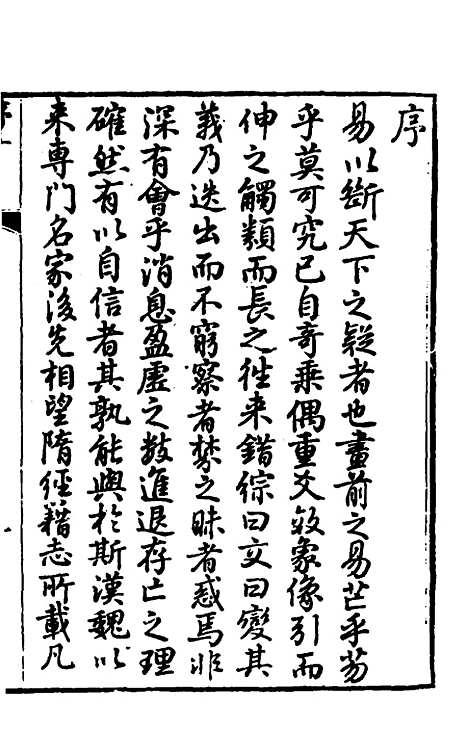 序
易以斷天下之疑者也畫前之易芒乎芴
乎莫可究已自奇乗偶重爻效象像引而
伸之觸類而長之徃来錯綜曰文曰變其
義乃迭出而不窮察者棼之昧者惑焉非
深有會乎消息盈虛之数進退存亡之理
確然有以自信者其孰能與於斯漢魏以
来專門名家後先相望隋經籍志所載凡